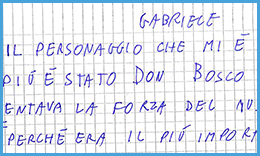 GABRIELE
IL PERSONAGGIO CHE MI È
PIÚ È STATO DON BOSCO
ENTAVA LA FORZA DEL
PERCHÈ ERA IL PIÚ IMPORT